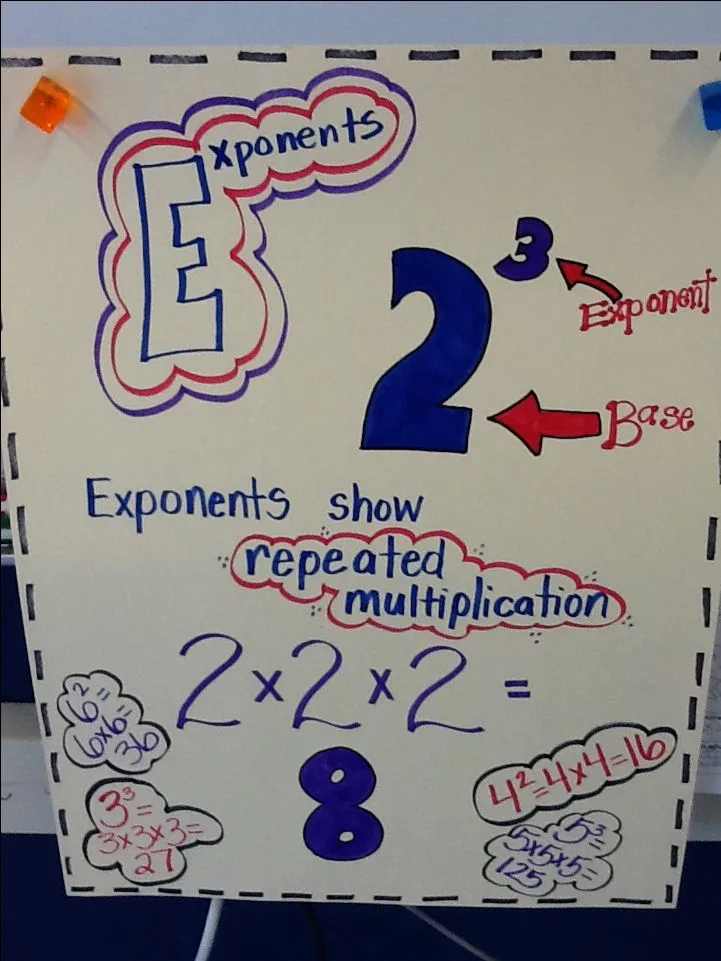 Exponents
2³
Exponent
Base
Exponents show
repeated
multiplication
2 x 2 x 2 =
8
6² =
6x6=
36
3³ =
3x3x3=
27
4²=4x4=16
5³=
5x5x5=
125